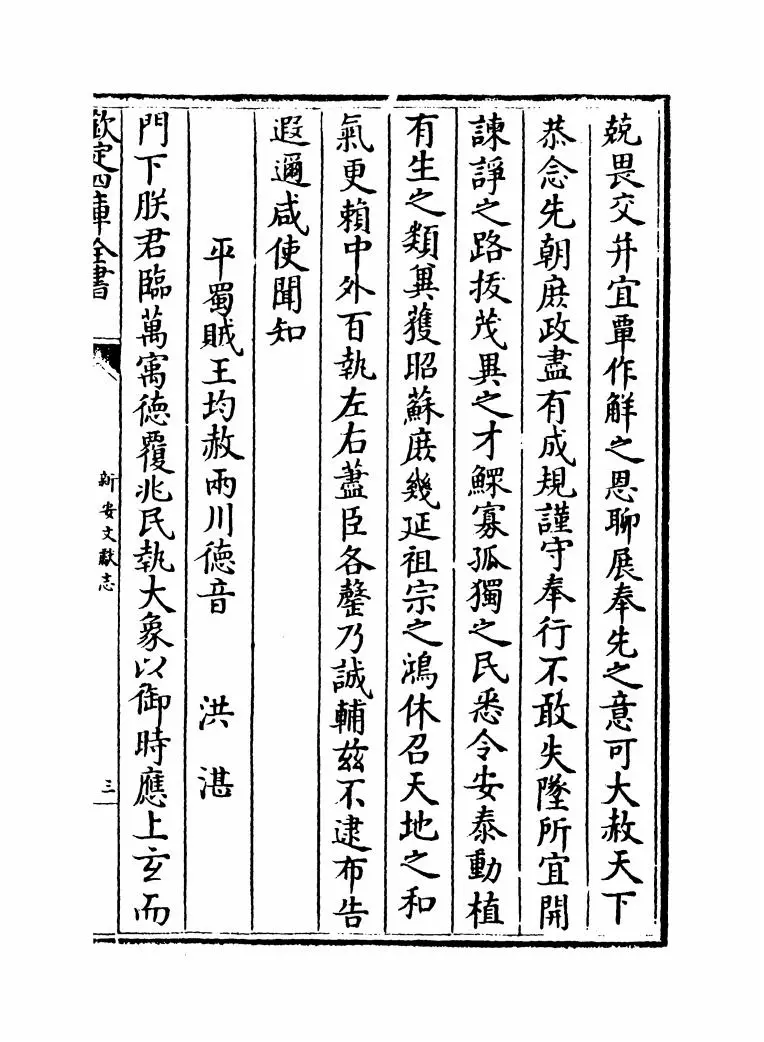 兢畏交并宜覃作解之恩聊展奉先之意可大赦天下
恭念先朝庶政盡有成規謹守奉行不敢失墜所宜開
諫諍之路拔茂異之才鰥寡孤獨之民悉令安泰動植
有生之類冀獲昭蘇庶幾延祖宗之鴻休召天地之和
氣更賴中外百執左右藎臣各罄乃誠輔兹不逮布告
遐邇咸使聞知
平蜀賊王均赦兩川徳音 洪湛
門下朕君臨萬㝢徳覆兆民執大象以御時應上玄而
欽定四庫全書
新安文獻志
三